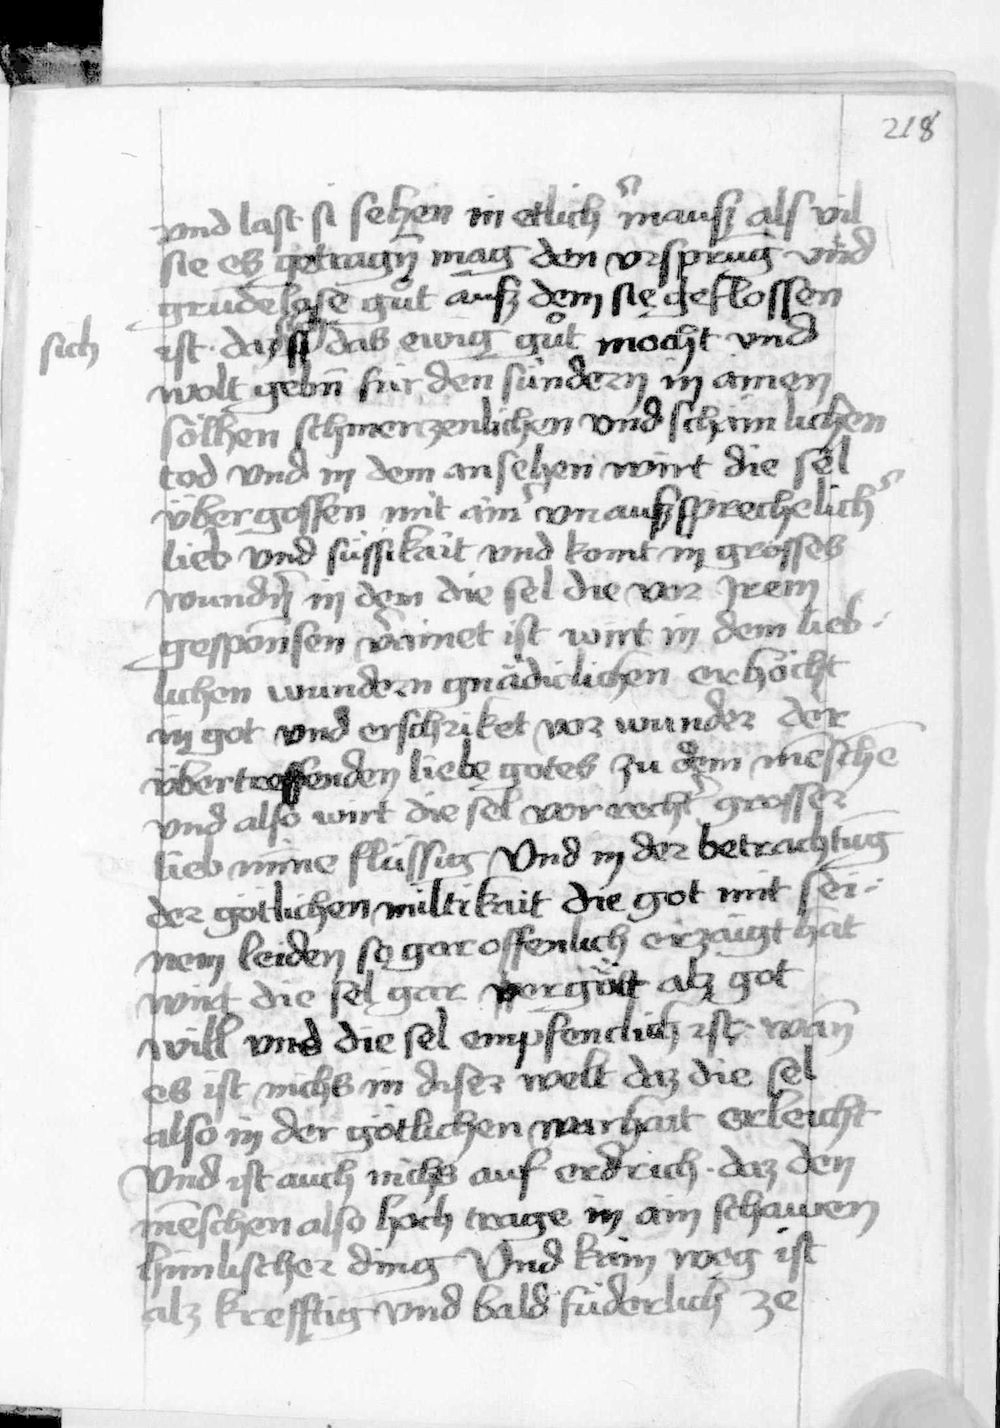 218
vnd last si sehen in etlichͬ mausz als vil
sie es getragn̄ mag den vrsprūg vnd
grūdelose gūt ausz dem sie geflossen
sich
ist · daz si das ewig gůt mocht vnd
wolt gebn̄ für den sündern in ainen
sölhen schmerzenlichen vnd schamlichen
tod vnd in dem ansehen wirt die sel
übergossen mit aimͬ vnauszsprechelichͬ
lieb vnd süssikait vnd komt in grosses
wundn̄ in dem die sel die vor jrem
gesponsen v̄ainet ist wirt in dem lieb-
lichen wundern gnädiclichen erhöcht
in got vnd erschriket vor wunder der
übertreffenden liebe gotes zu dem mēsche
vnd also wirt die sel vor rechtͬ grosser
lieb mīne flüssig Vnd in der betrachtūg
der götlichen miltikait die got mit sei-
nem leiden so gar offenlich erzaügt hat
wirt die sel gar vergött alz got
will vnd die sel empfenclich ist · wan̄
es ist nichs in diser welt daz die sel
also in der götlichen warhait erleücht
Vnd ist auch nichs auf erdrich · daz den
mēschen also hoch trage in ain schawen
himlischer ding Vnd kain weg ist
alz krefftig vnd bald füderlich ze